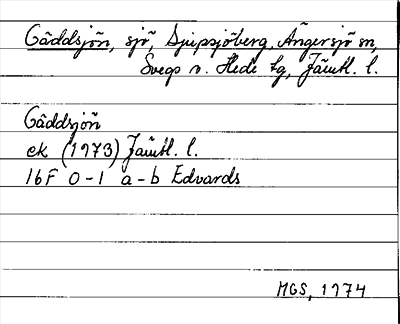 Gäddsjön, sjö, Djupsjöberg, Ängersjö sn,
Svegs o. Hede tg, Jämtl. l.
Gäddsjön
ek (1973) Jämtl. l.
16F 0-1 a-b Edvards
MGS, 1974